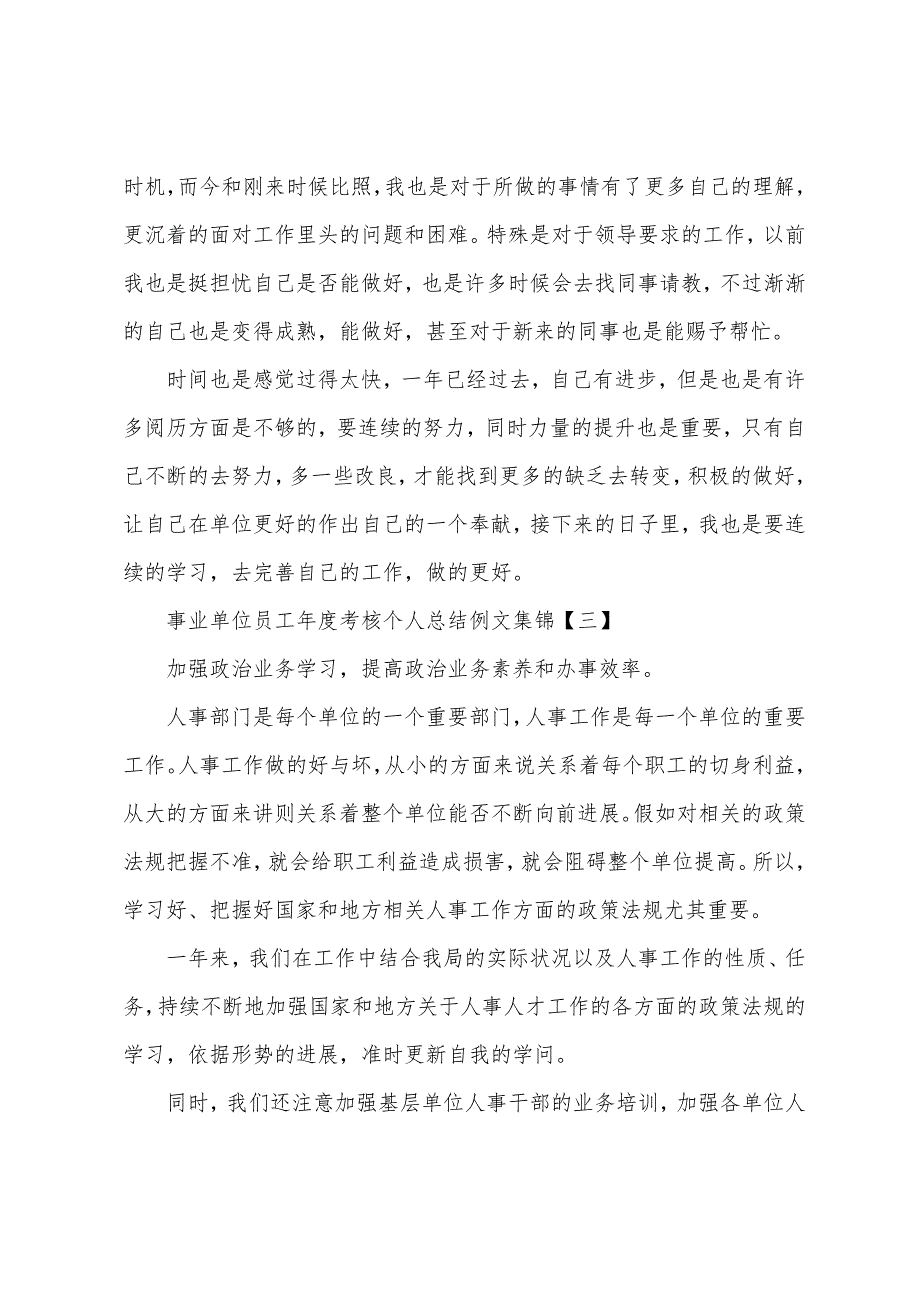 时机，而今和刚来时候比照，我也是对于所做的事情有了更多自己的理解，
更沉着的面对工作里头的问题和困难。特殊是对于领导要求的工作，以前
我也是挺担忧自己是否能做好，也是许多时候会去找同事请教，不过渐渐
的自己也是变得成熟，能做好，甚至对于新来的同事也是能赐予帮忙。
时间也是感觉过得太快，一年已经过去，自己有进步，但是也是有许
多阅历方面是不够的，要连续的努力，同时力量的提升也是重要，只有自
己不断的去努力，多一些改良，才能找到更多的缺乏去转变，积极的做好，
让自己在单位更好的作出自己的一个奉献，接下来的日子里，我也是要连
续的学习，去完善自己的工作，做的更好。
事业单位员工年度考核个人总结例文集锦【三】
加强政治业务学习，提高政治业务素养和办事效率。
人事部门是每个单位的一个重要部门，人事工作是每一个单位的重要
工作。人事工作做的好与坏，从小的方面来说关系着每个职工的切身利益，
从大的方面来讲则关系着整个单位能否不断向前进展。假如对相关的政策
法规把握不准，就会给职工利益造成损害，就会阻碍整个单位提高。所以，
学习好、把握好国家和地方相关人事工作方面的政策法规尤其重要。
一年来，我们在工作中结合我局的实际状况以及人事工作的性质、任
务，持续不断地加强国家和地方关于人事人才工作的各方面的政策法规的
学习，依据形势的进展，准时更新自我的学问。
同时，我们还注意加强基层单位人事干部的业务培训，加强各单位人